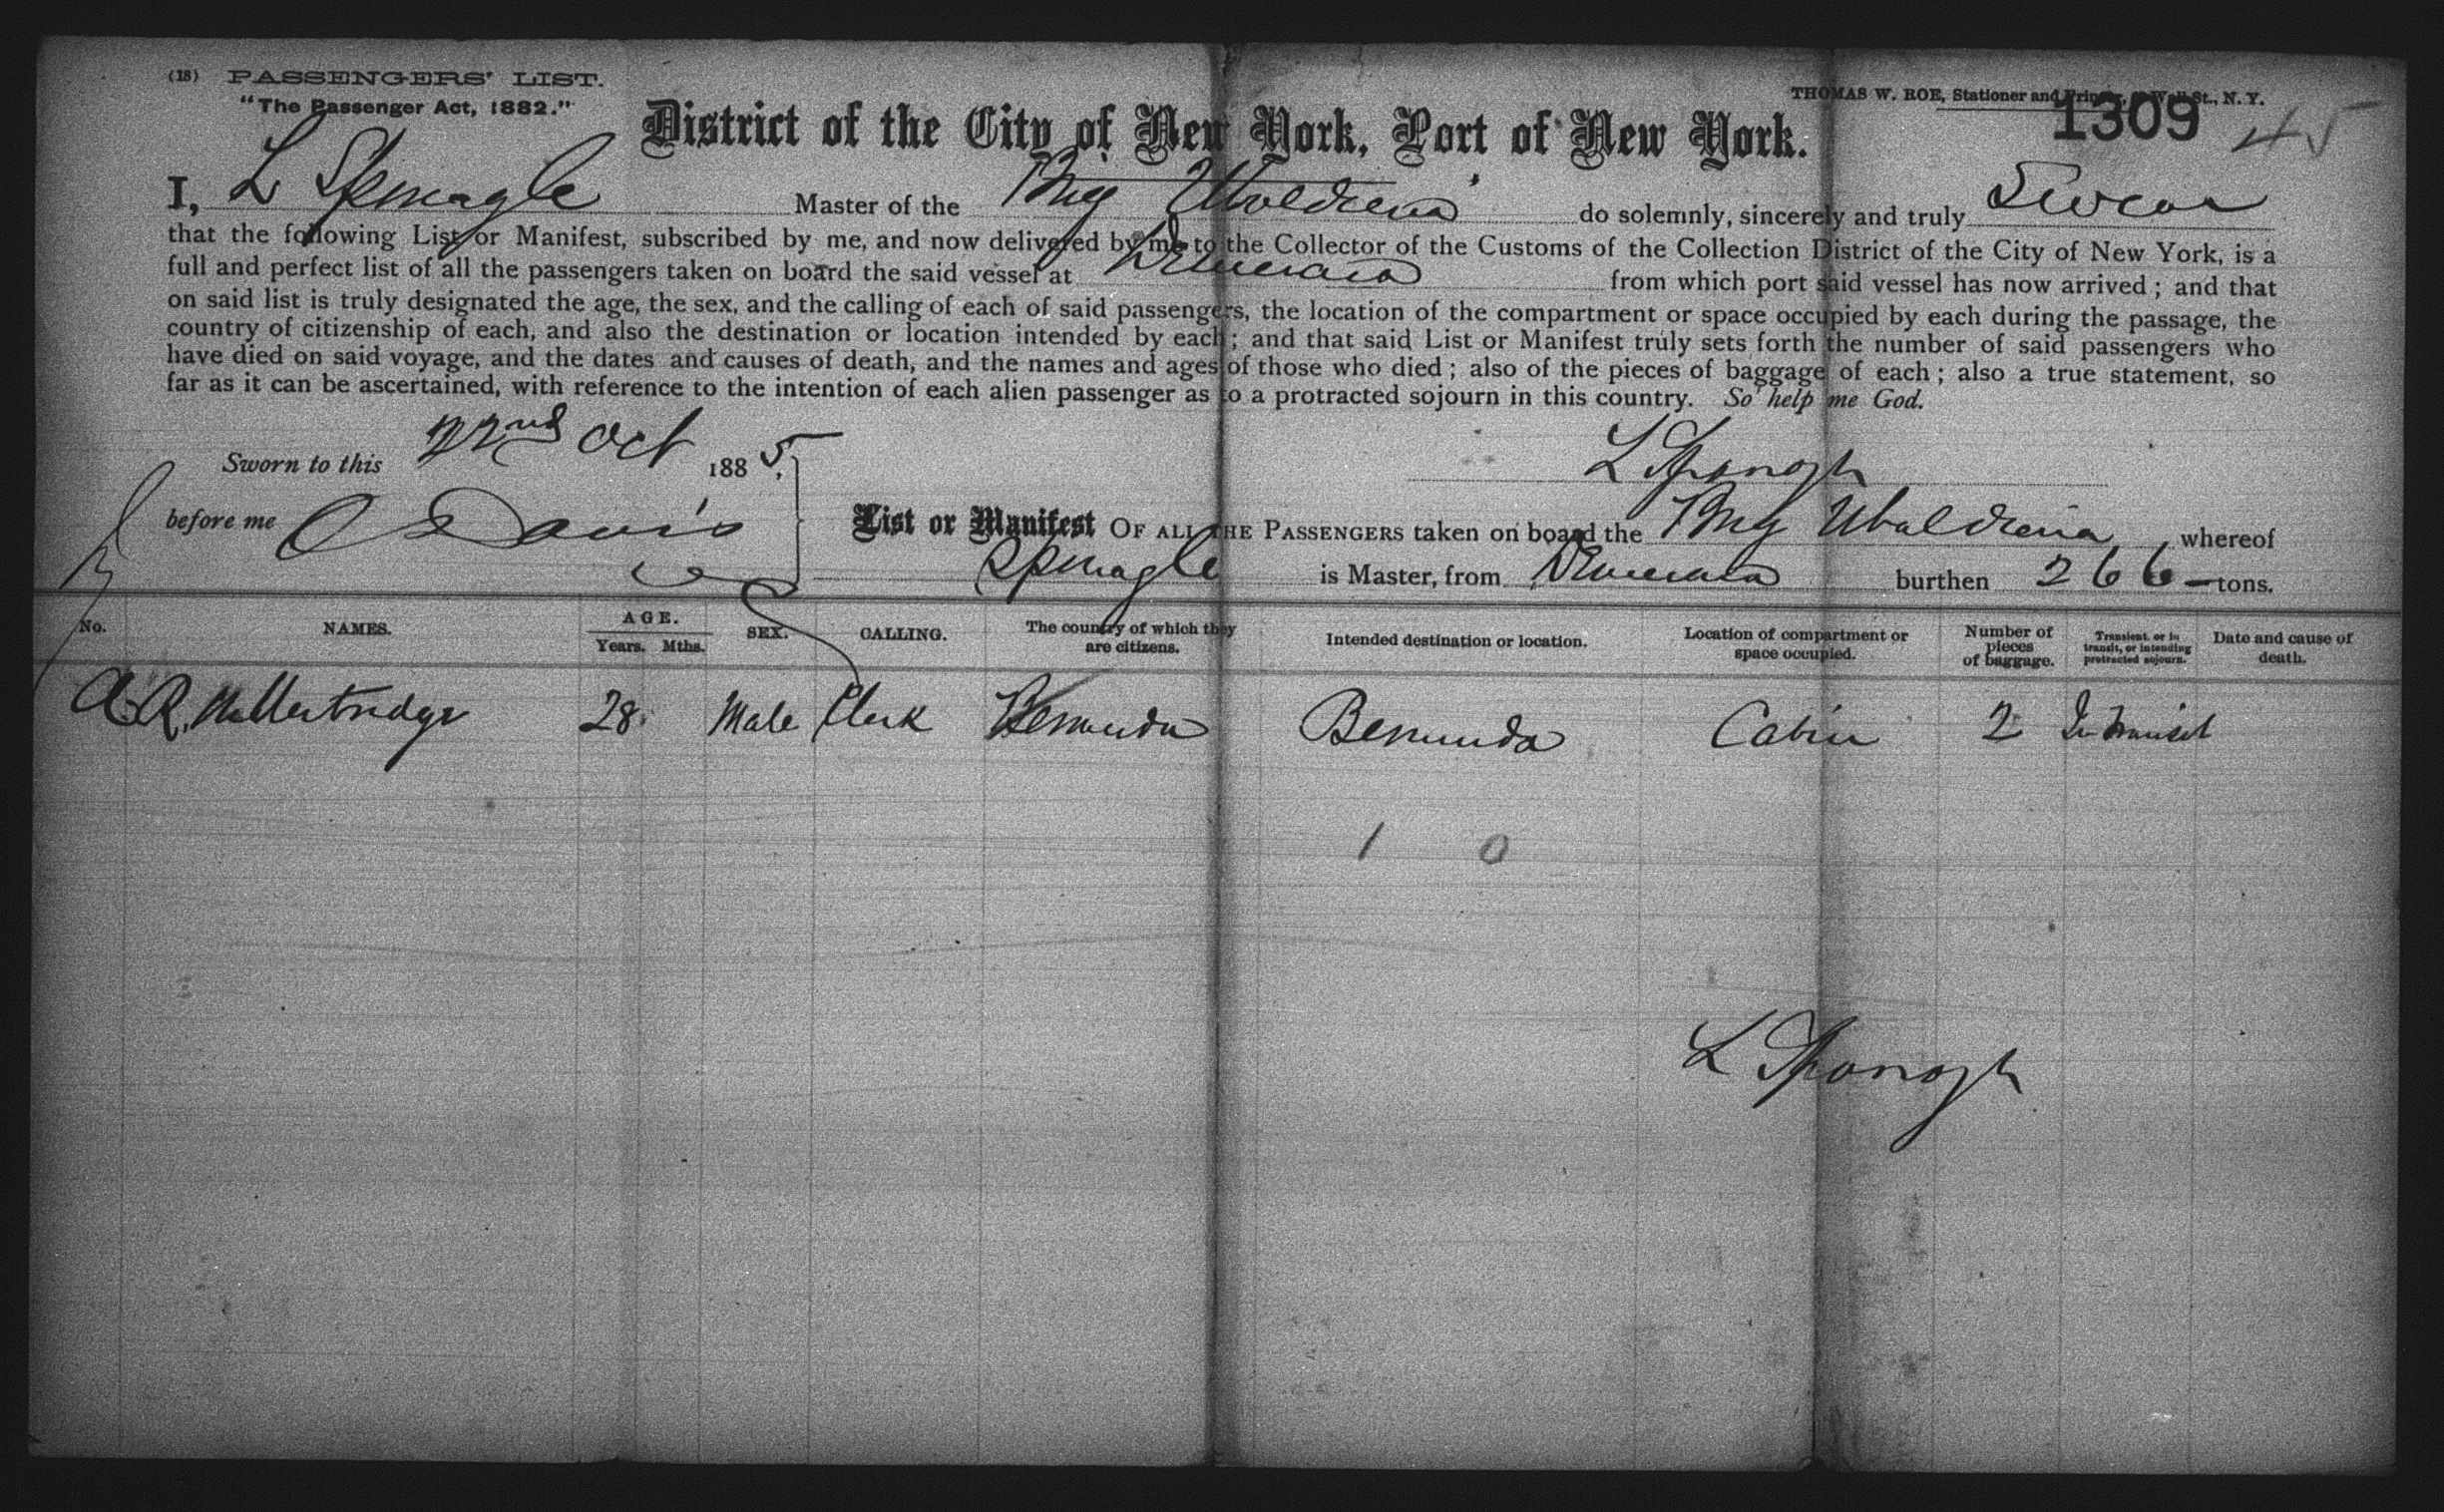 (18) PASSENGERS' LIST.
"The Passenger Act, 1882."
THOMAS W. ROE, Stationer and Printer, St., N. Y.
1309 45
District of the City of New York, Port of New York.
I, L Sponagle Master of the Brig Ubaldina do solemnly, sincerely and truly Swear
that the following List or Manifest, subscribed by me, and now delivered by me to the Collector of the Customs of the Collection District of the City of New York, is a
full and perfect list of all the passengers taken on board the said vessel at Demerara from which port said vessel has now arrived; and that
on said list is truly designated the age, the sex, and the calling of each of said passengers, the location of the compartment or space occupied by each during the passage, the
country of citizenship of each, and also the destination or location intended by each; and that said List or Manifest truly sets forth the number of said passengers who
have died on said voyage, and the dates and causes of death, and the names and ages of those who died; also of the pieces of baggage of each; also a true statement, so
far as it can be ascertained, with reference to the intention of each alien passenger as to a protracted sojourn in this country. So help me God.
Sworn to this 22nd Oct 1885.
L Sponagle
before me Davis
List or Manifest OF ALL THE PASSENGERS taken on board the Brig Ubaldina, whereof
Sponagle is Master, from Demerara burthen 266 tons.
No. NAMES. AGE. Years. Mths. SEX. CALLING. The country of which they are citizens. Intended destination or location. Location of compartment or space occupied. Number of pieces of baggage. Transient, or in transit, or intending protracted sojourn. Date and cause of death.
A. R. 28 Male Clerk Bermuda Bermuda Cabin 2 In transit
1 0
L Sponagle